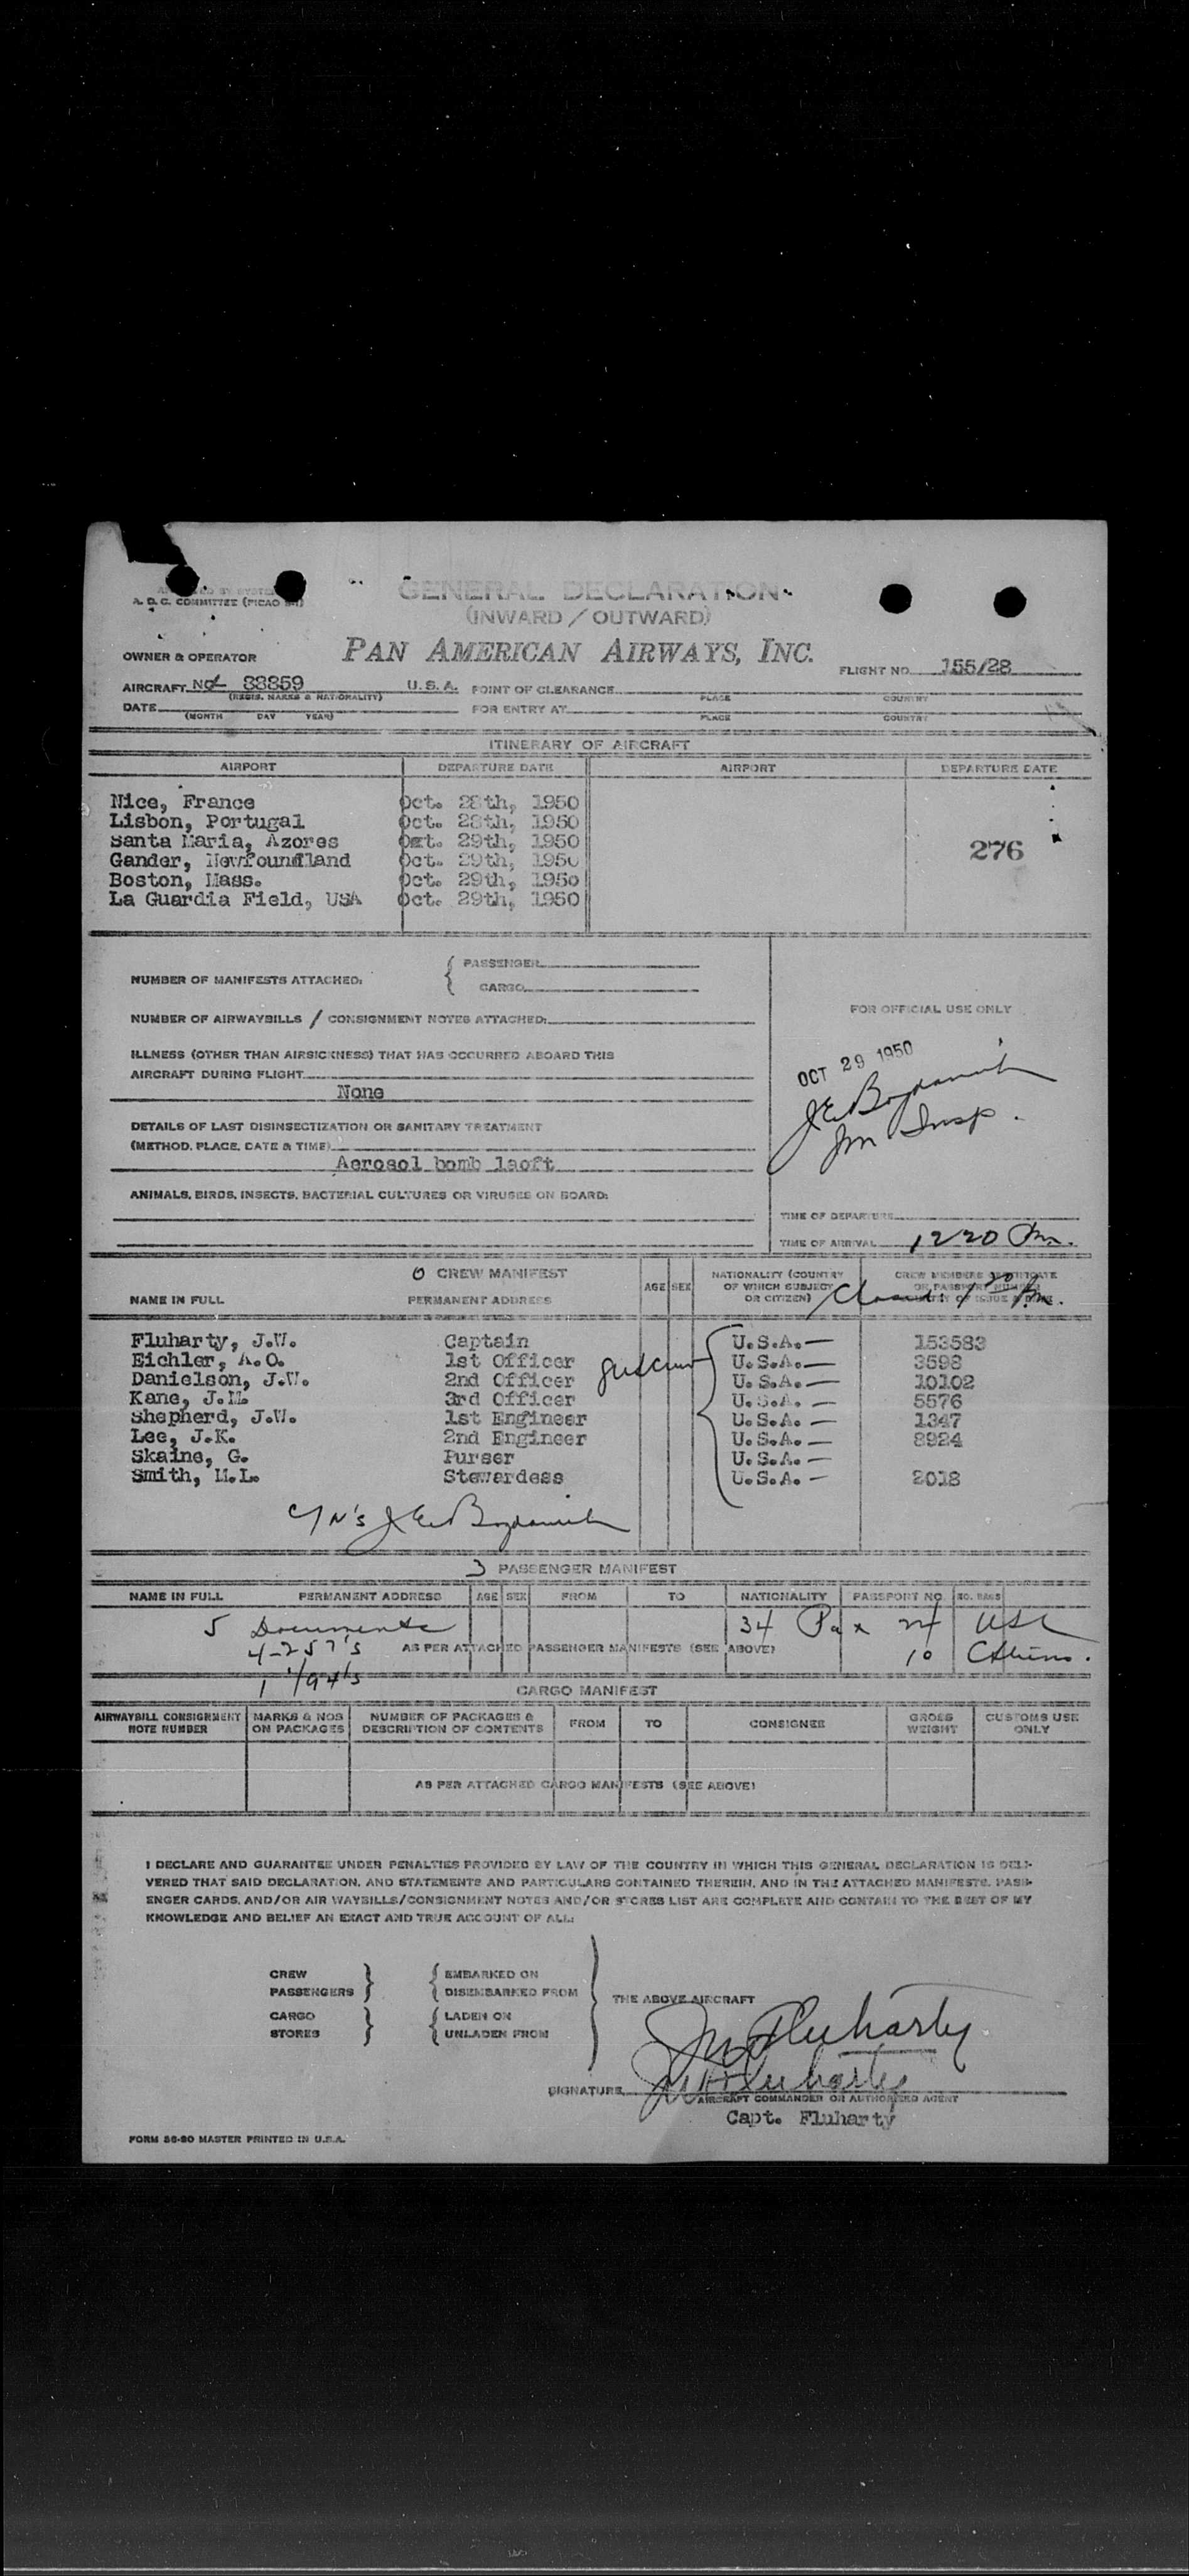 GENERAL DECLARATION
(INWARD / OUTWARD)
A. D. C. COMMITTEE (PICAO
OWNER & OPERATOR PAN AMERICAN AIRWAYS, INC. FLIGHT NO. 155/28
AIRCRAFT 88859 U.S.A. POINT OF CLEARANCE
(REGIS. MARKS & NATIONALITY) PLACE COUNTRY
DATE FOR ENTRY AT
(MONTH DAY YEAR) PLACE COUNTRY
ITINERARY OF AIRCRAFT
AIRPORT DEPARTURE DATE AIRPORT DEPARTURE DATE
Nice, France Oct. 28th, 1950
Lisbon, Portugal Oct. 28th, 1950
Santa Maria, Azores Oct. 29th, 1950
276
Gander, Newfoundland Oct. 29th, 1950
Boston, Mass. Oct. 29th, 1950
La Guardia Field, USA Oct. 29th, 1950
NUMBER OF MANIFESTS ATTACHED: { PASSENGER
CARGO
FOR OFFICIAL USE ONLY
NUMBER OF AIRWAYBILLS / CONSIGNMENT NOTES ATTACHED:
ILLNESS (OTHER THAN AIRSICKNESS) THAT HAS OCCURRED ABOARD THIS
AIRCRAFT DURING FLIGHT
None
OCT 29 1950
Insp.
DETAILS OF LAST DISINSECTIZATION OR SANITARY TREATMENT
(METHOD, PLACE, DATE & TIME)
Aerosol bomb laoft
ANIMALS, BIRDS, INSECTS, BACTERIAL CULTURES OR VIRUSES ON BOARD:
TIME OF DEPARTURE
TIME OF ARRIVAL 1220 Pm.
CREW MANIFEST AGE SEX NATIONALITY (COUNTRY OF WHICH SUBJECT OR CITIZEN)
NAME IN FULL PERMANENT ADDRESS
Fluharty, J.W. Captain U.S.A.— 153583
Eichler, A.O. 1st Officer U.S.A.— 3598
Danielson, J.W. 2nd Officer U.S.A.— 10102
Kane, J.M. 3rd Officer U.S.A.— 5576
Shepherd, J.W. 1st Engineer U.S.A.— 1347
Lee, J.K. 2nd Engineer U.S.A.— 8924
Skaine, G. Purser U.S.A.—
Smith, M.L. Stewardess U.S.A.— 2018
3 PASSENGER MANIFEST
NAME IN FULL PERMANENT ADDRESS AGE SEX FROM TO NATIONALITY PASSPORT NO. NO. BAGS
5 Documents 34 Pax 24 USC
4-257's AS PER ATTACHED PASSENGER MANIFESTS (SEE ABOVE) 10
CARGO MANIFEST
AIRWAYBILL CONSIGNMENT NOTE NUMBER MARKS & NOS ON PACKAGES NUMBER OF PACKAGES & DESCRIPTION OF CONTENTS FROM TO CONSIGNEE GROSS WEIGHT CUSTOMS USE ONLY
AS PER ATTACHED CARGO MANIFESTS (SEE ABOVE)
I DECLARE AND GUARANTEE UNDER PENALTIES PROVIDED BY LAW OF THE COUNTRY IN WHICH THIS GENERAL DECLARATION IS DELI-
VERED THAT SAID DECLARATION, AND STATEMENTS AND PARTICULARS CONTAINED THEREIN, AND IN THE ATTACHED MANIFESTS, PASS-
ENGER CARDS, AND/OR AIR WAYBILLS/CONSIGNMENT NOTES AND/OR STORES LIST ARE COMPLETE AND CONTAIN TO THE BEST OF MY
KNOWLEDGE AND BELIEF AN EXACT AND TRUE ACCOUNT OF ALL:
CREW } { EMBARKED ON
PASSENGERS DISEMBARKED FROM
THE ABOVE AIRCRAFT
CARGO } { LADEN ON
STORES UNLADEN FROM
JW Fluharty
SIGNATURE JW Fluharty
AIRCRAFT COMMANDER OR AUTHORIZED AGENT
Capt. Fluharty
FORM 86-80 MASTER PRINTED IN U.S.A.